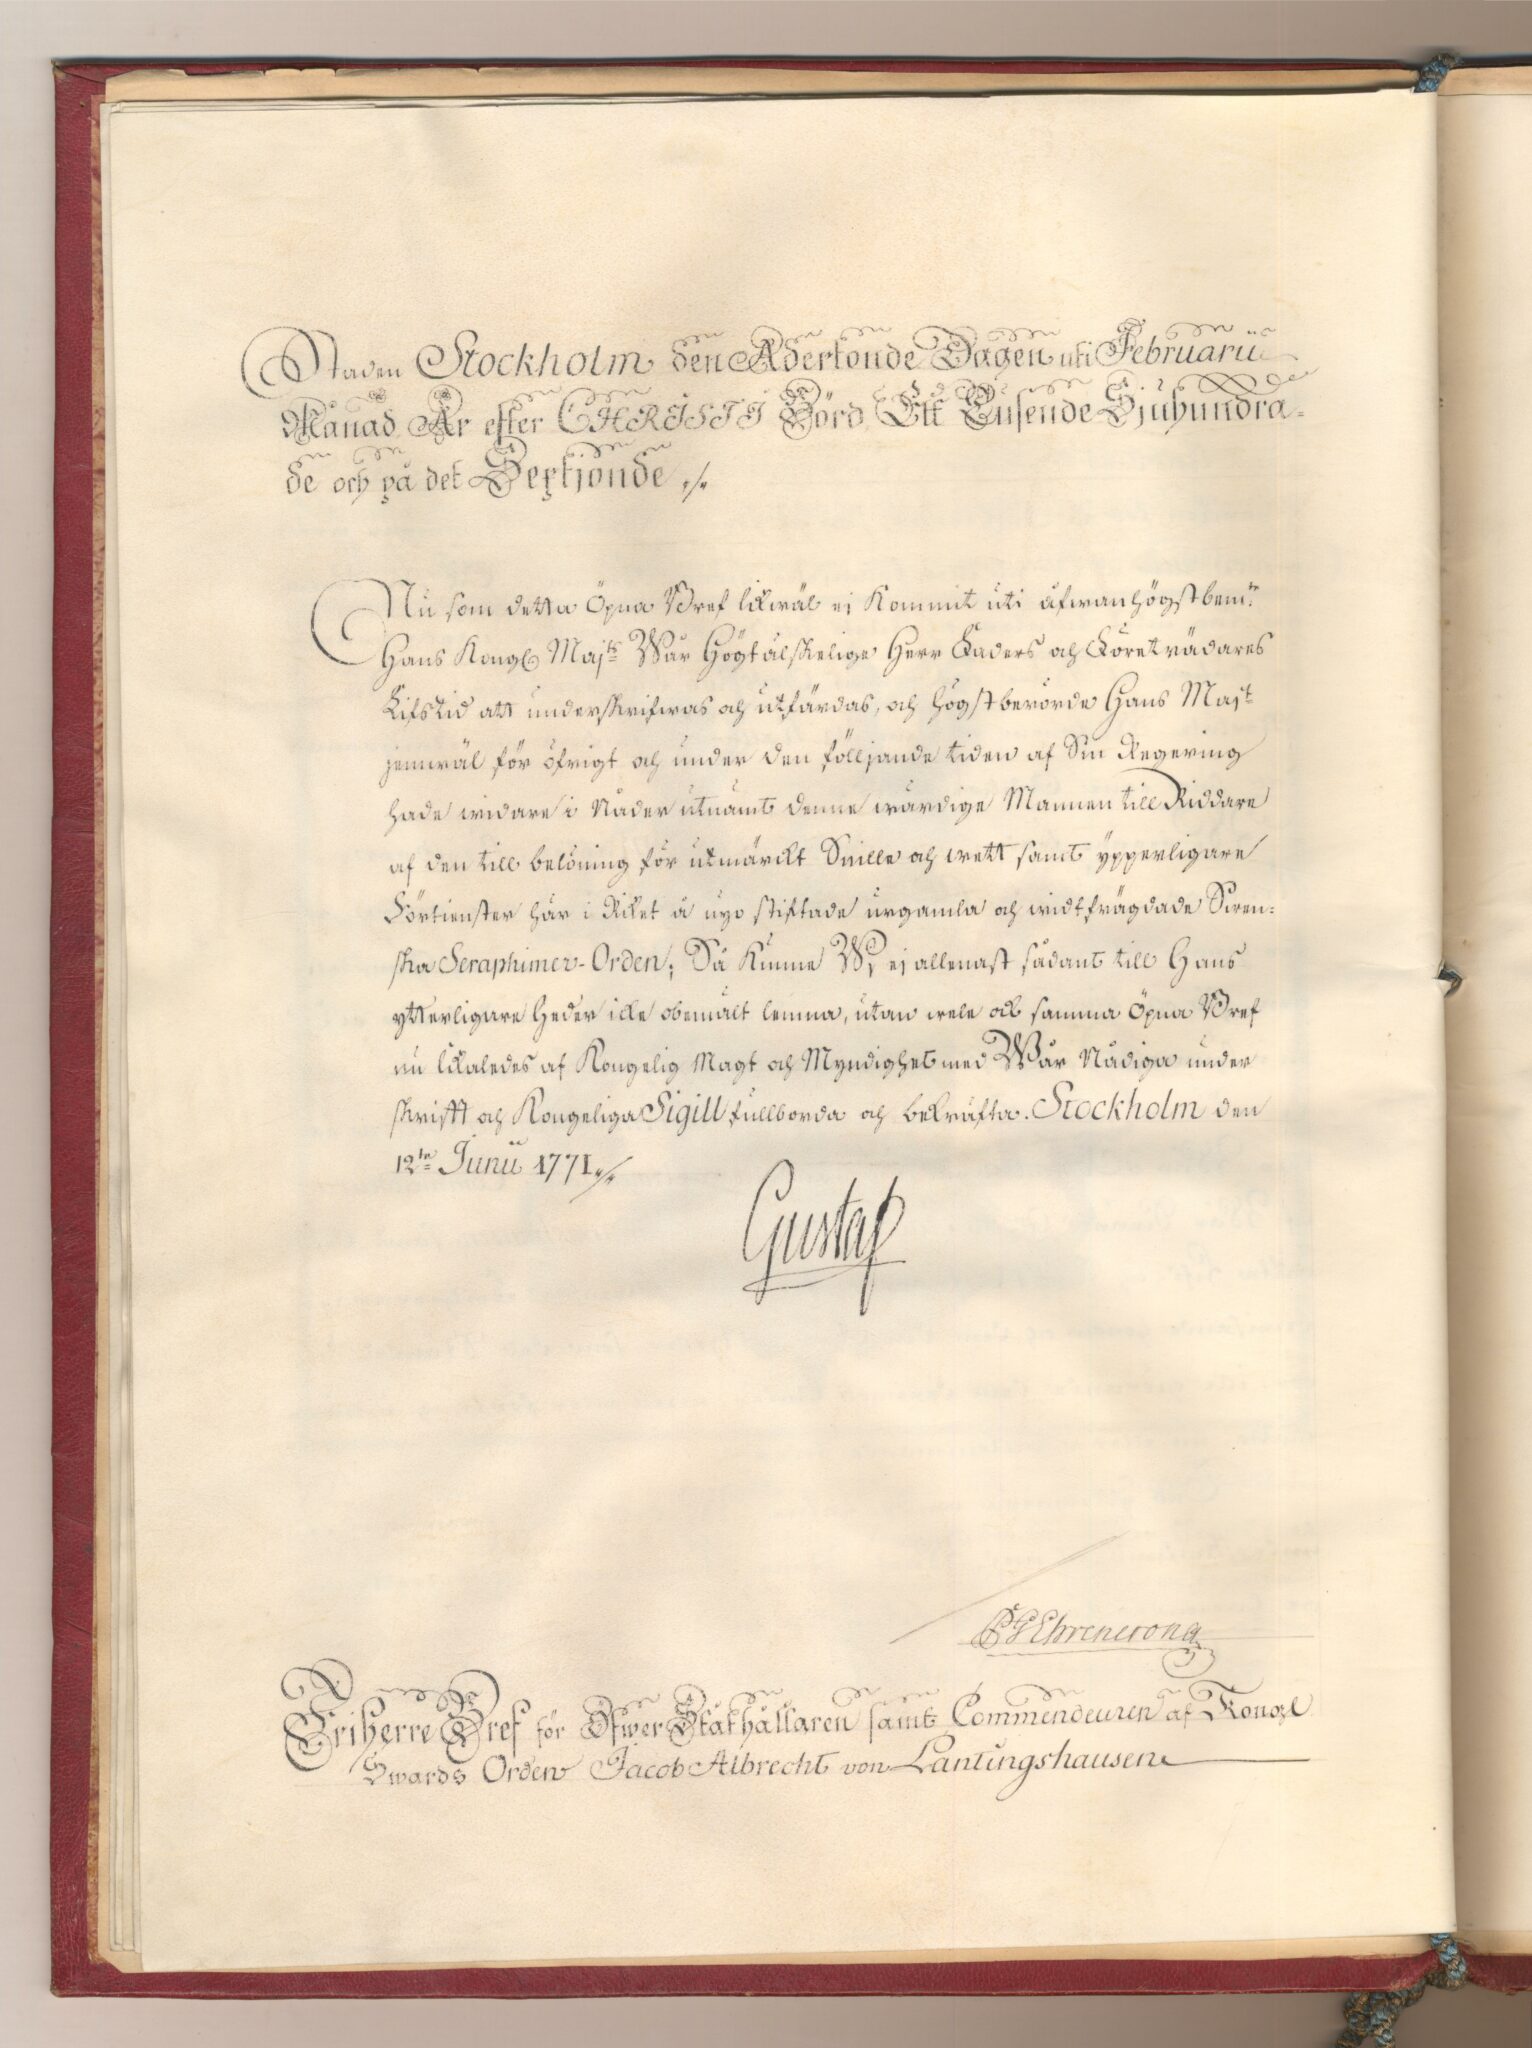 Staden Stockholm den Adertonde Dagen uti Februarii
Månad År efter CHRISTI Börd Ett Tusende Sjuhundra-
de och på det Sextjonde
Nu som detta Öpna Bref likwäl ej kommit uti ofwanhögstbem:te
Hans Kongl Maj:ts Wår Högtälskelige Herr Faders och Företrädares
Lifstid att underskrifwas och utfärdas, och högstberörde Hans Maj:t
jemwäl för öfrigt och under den följande tiden af Sin Regering
hade widare i Nåder utnämt denne wärdige Mannen till Riddare
af den till belöning för utmärckt Snille och wett samt ypperligare
Förtienster här i Riket å nyo stiftade urgamla och widtfrägdade Swen-
ska Seraphimer-Orden; Så kunne Wi ej allenast sådant till Hans
ytterligare Heder icke obemält lemna, utan wele ock samma Öpna Bref
nu likaledes af Kongelig Magt och Myndighet med Wår Nådiga under
skrifft och Kongeliga Sigill fullborda och bekräfta. Stockholm den
12:te Junii 1771
Gustaf
Ehrencrona
Friherre Bref för Öfwer Ståthållaren samt Commendeuren af Kongl
Swärds Orden Jacob Albrecht von Lantingshausen